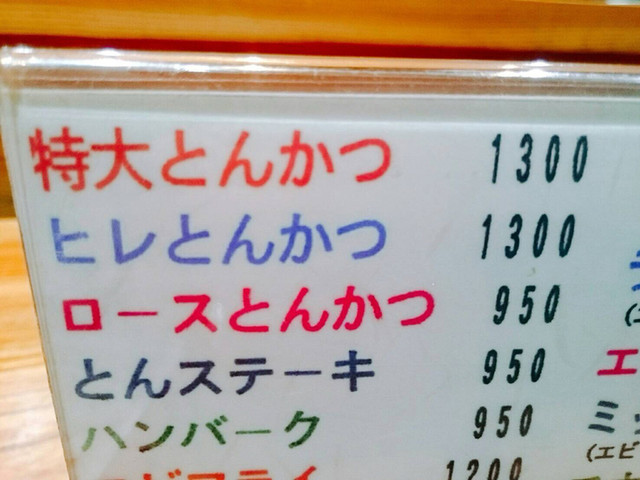 特大とんかつ 1300
ヒレとんかつ 1300
ロースとんかつ 950
とんステーキ 950
ハンバーク 950
1200
エ
ミッ
(エビ